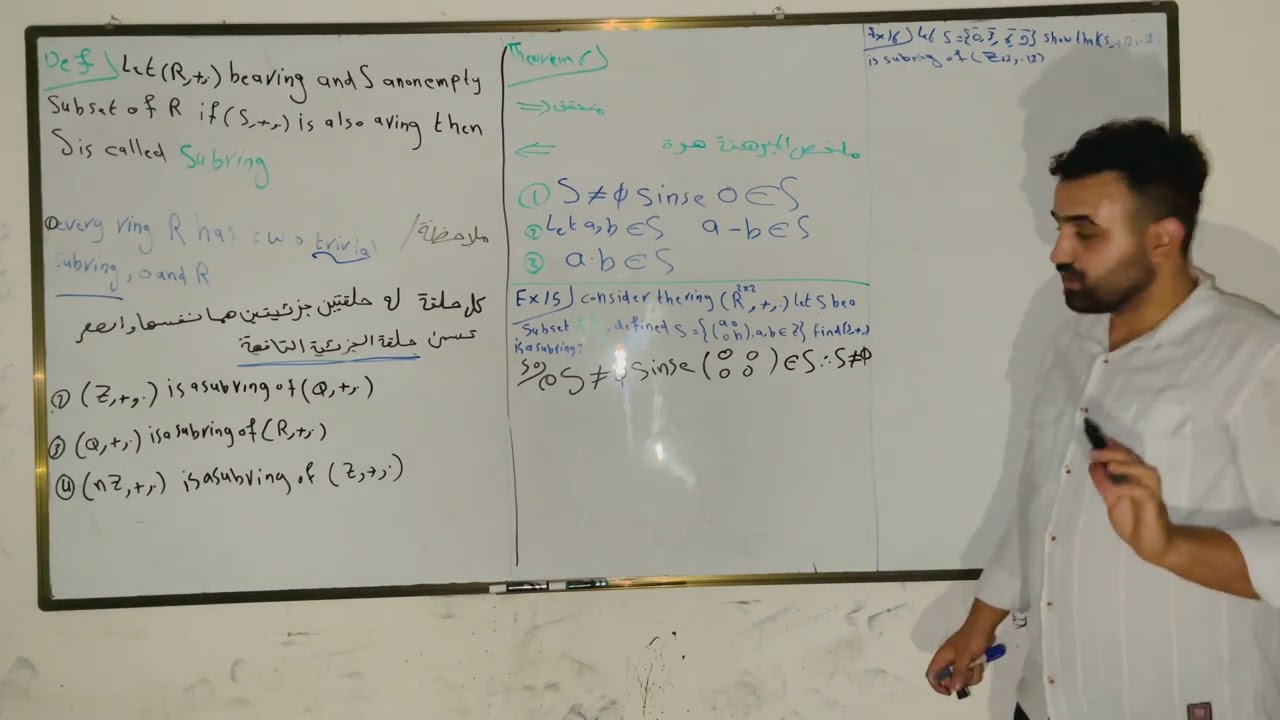 Def) Let (R,+,.) bearing and S anonempty
Subset of R if (S,+,.) is also aring then
S is called Subring
ملاحظة /
① every ring R has two trivial
subring, 0 and R
كل حلقة له حلقتين جزئيتين هما نفسها والصفر
تسمى حلقة الجزئية التافهة
② (Z,+,.) is asubring of (Q,+,.)
③ (Q,+,.) is a subring of (R,+,.)
④ (nZ,+,.) is asubring of (Z,+,.)
Theorem
⇒ متحقق
⇐ ملخص المبرهنة هوة
① S ≠ φ Sinse 0 ∈ S
② Let a,b ∈ S a-b ∈ S
③ a.b ∈ S
Ex 15) consider thering (R^2x2,+,.) Let S bea
Subset , defined S = {(a 0 / 0 b), a,b ∈ Z} find (S,+,.)
is a subring?
sol ① S ≠ φ Sinse (0 0 / 0 0) ∈ S ∴ S ≠ φ
Ex 16) let S = {0̄, 3̄, 6̄, 9̄} show that
is subring of (Z12, .12)